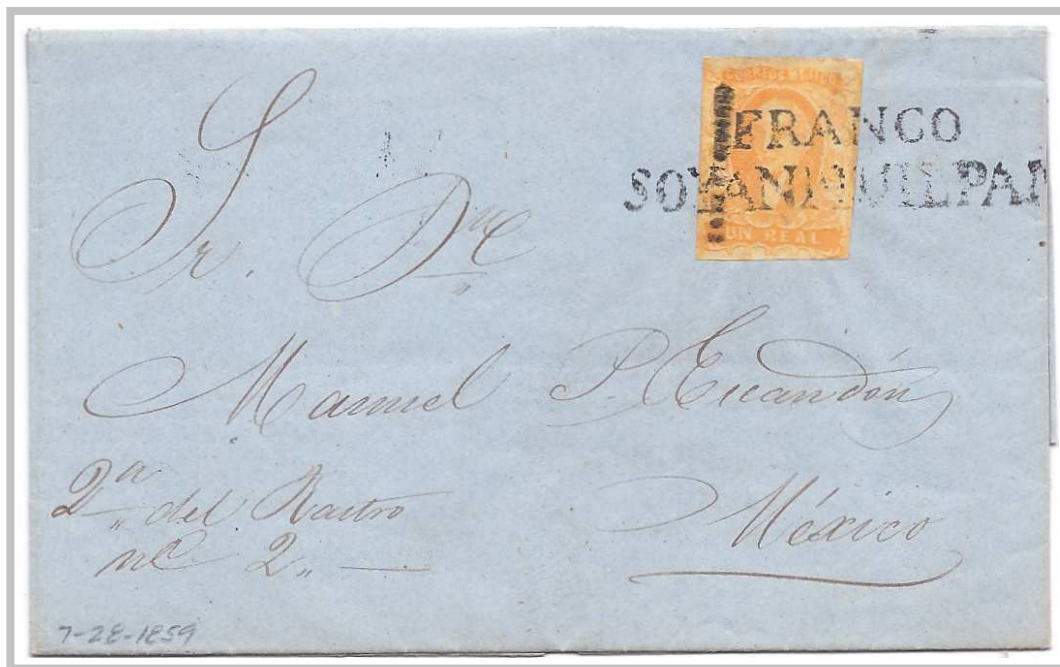 CORREOS MEJICO
FRANCO
SOYANIQUILPAN
UN REAL
Sr. Dn
Manuel P. Escandón
2a del Rastro
no 2
México
7-28-1859